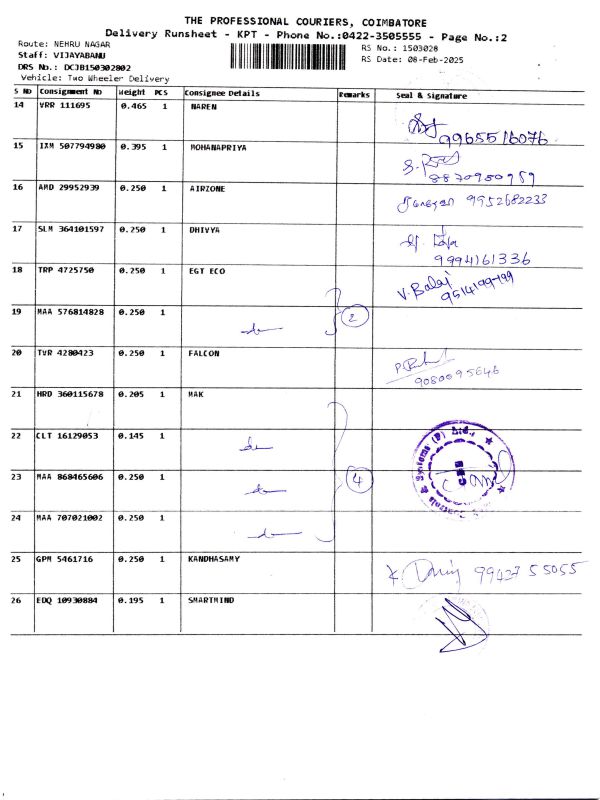 THE PROFESSIONAL COURIERS, COIMBATORE
Delivery Runsheet - KPT - Phone No.:0422-3505555 - Page No.:2
Route: NEHRU NAGAR
RS No.: 1503028
Staff: VIJAYABANU
RS Date: 08-Feb-2025
DRS No.: DCJB150302802
Vehicle: Two Wheeler Delivery
S NO Consignment No Weight PCS Consignee Details Remarks Seal & Signature
14 VRR 111695 0.465 1 NAREN
9965516076
15 IXM 507794980 0.395 1 MOHANAPRIYA
8870980959
16 AMD 29952939 0.250 1 AIRZONE 9952682233
17 SLM 364101597 0.250 1 DHIVYA
9994161336
18 TRP 4725750 0.250 1 EGT ECO V. Balaji
9514199499
19 MAA 576814828 0.250 1 2
20 TVR 4280423 0.250 1 FALCON
9080095646
21 HRD 360115678 0.205 1 MAK
22 CLT 16129053 0.145 1
23 MAA 868465606 0.250 1 4
24 MAA 707021002 0.250 1
Controls & Systems (P) Ltd.,
25 GPM 5461716 0.250 1 KANDHASAMY 99427 55055
26 EDQ 10930884 0.195 1 SMARTMIND